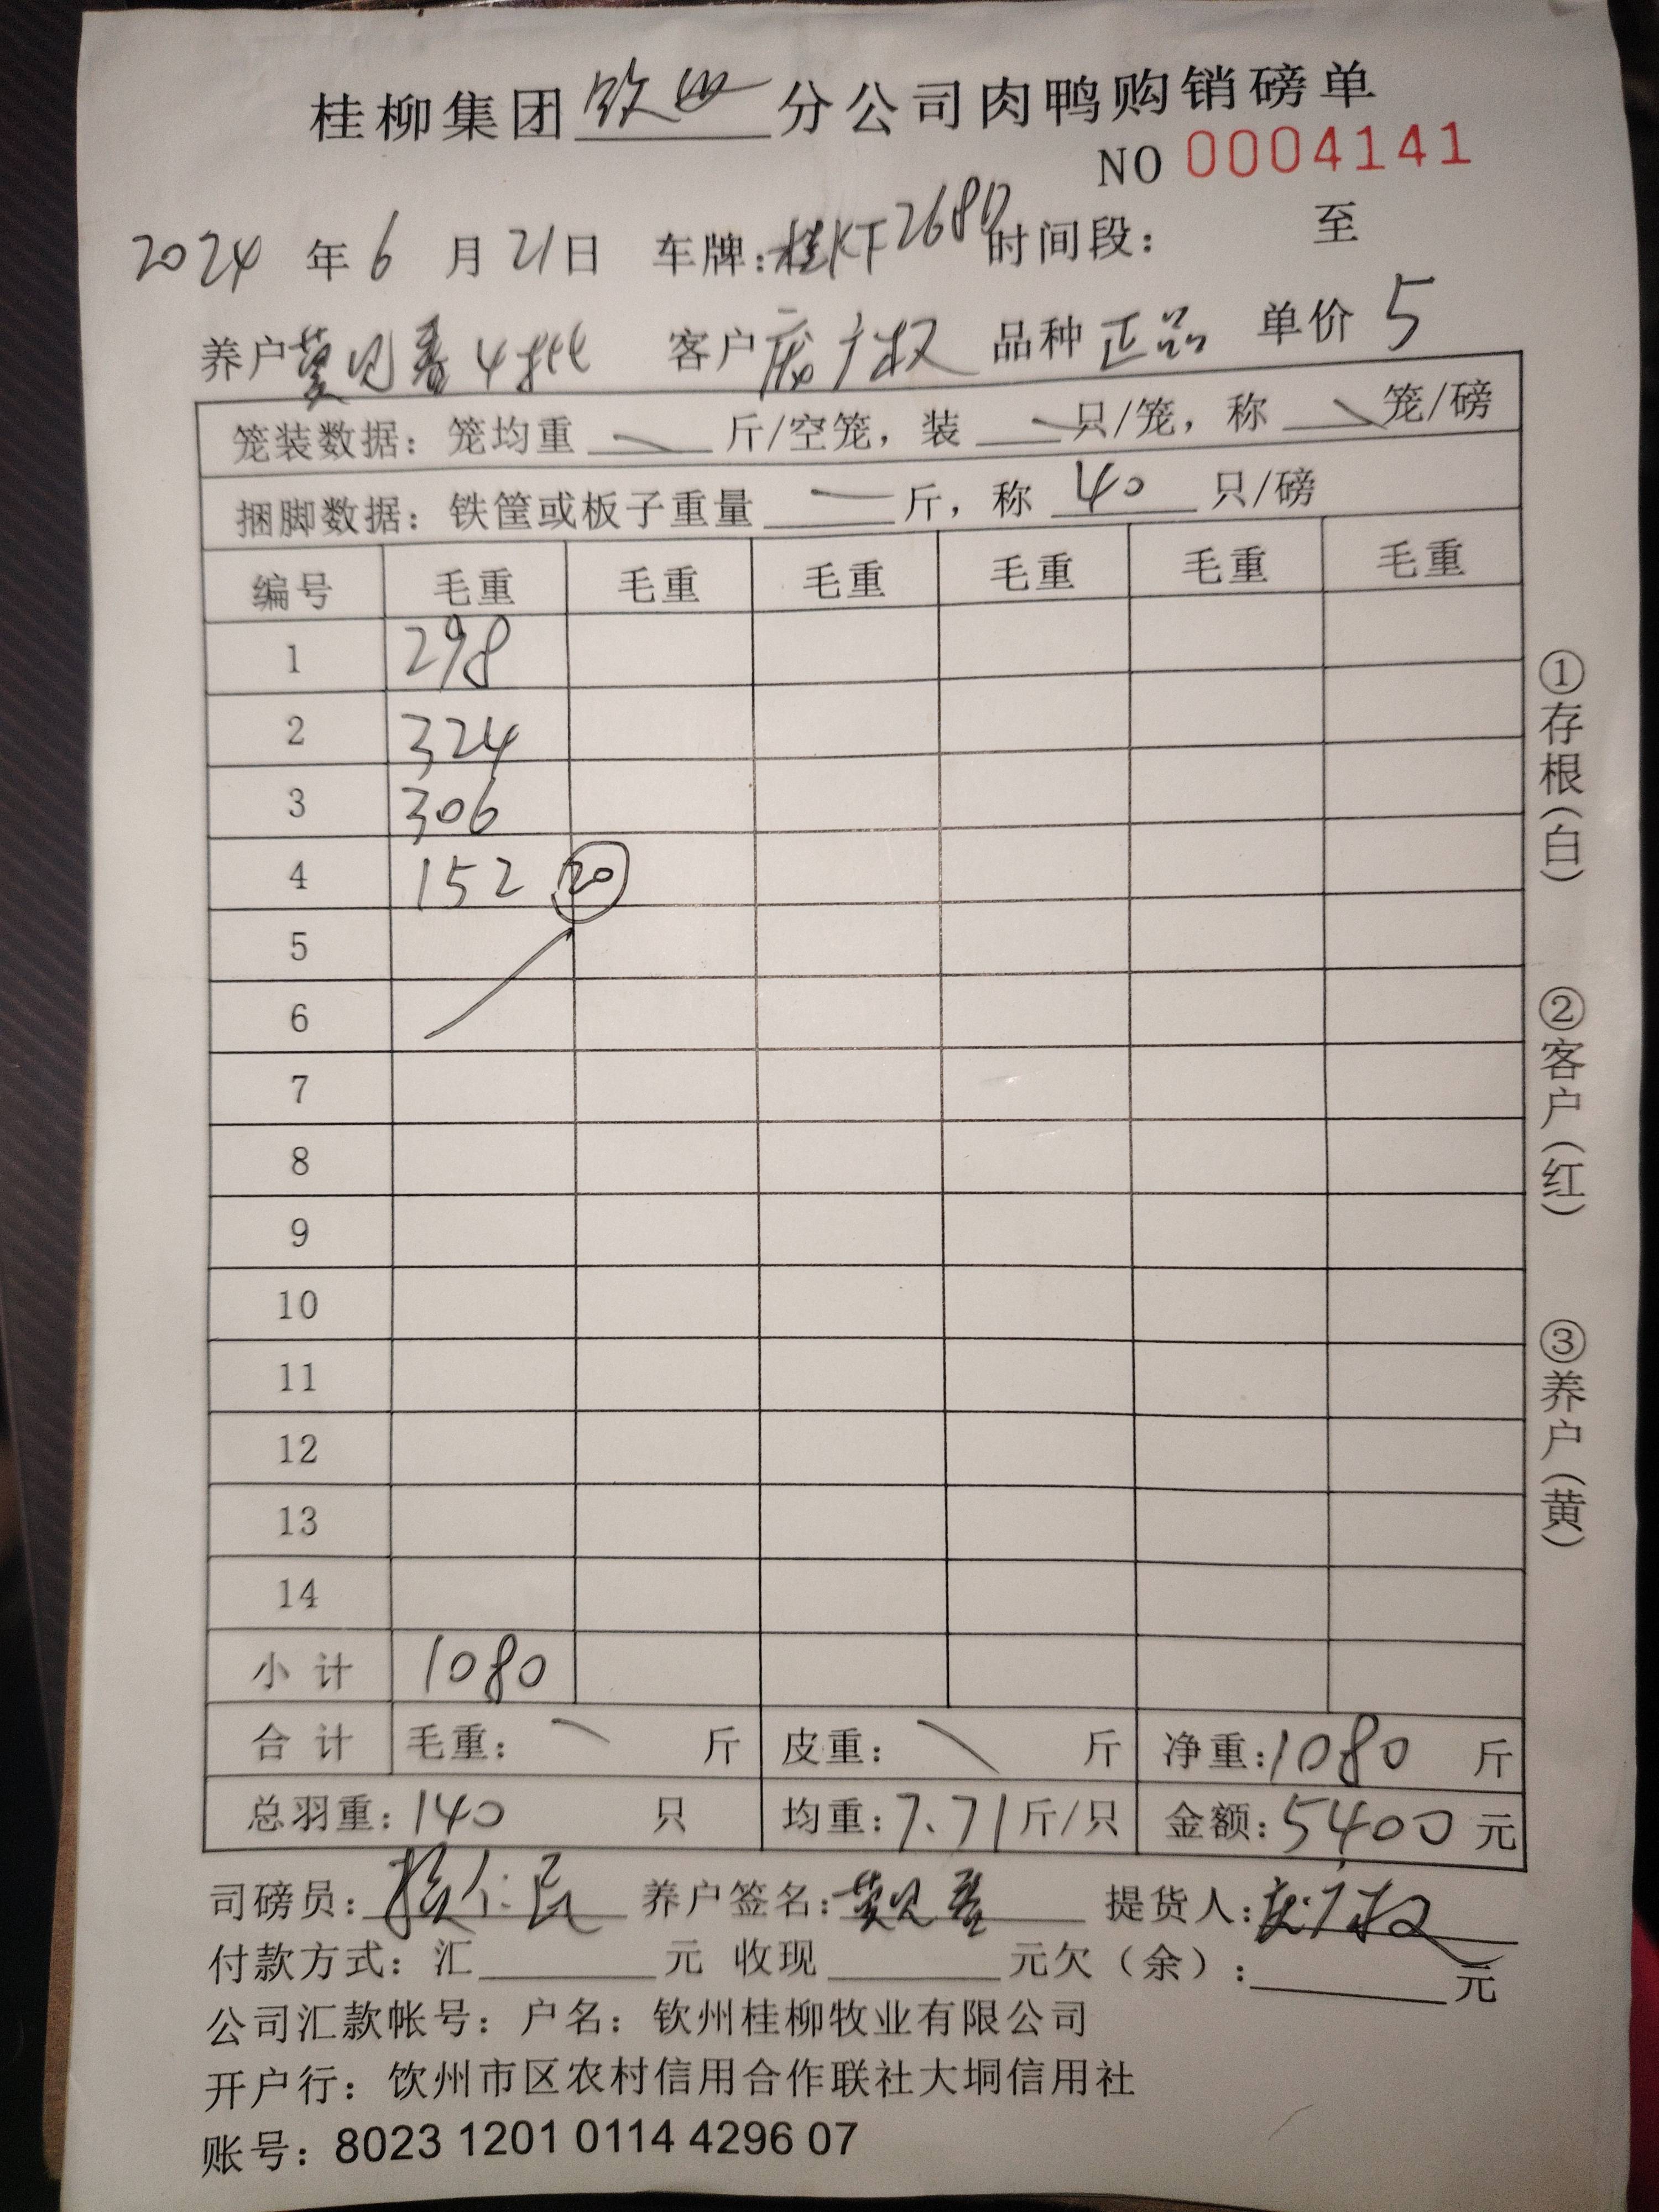 桂柳集团 钦州 分公司肉鸭购销磅单
NO 0004141
2024 年 6 月 21 日 车牌：桂KT2680 时间段： 至
养户 莫见春 4批 客户 庞广权 品种 正品 单价 5
笼装数据：笼均重 斤/空笼，装 只/笼，称 笼/磅
捆脚数据：铁筐或板子重量 斤，称 40 只/磅
编号 毛重 毛重 毛重 毛重 毛重 毛重
1 298
2 324
3 306
4 152 20
5
6
7
8
9
10
11
12
13
14
小计 1080
合计 毛重： 斤 皮重： 斤 净重：1080 斤
总羽重：140 只 均重：7.71 斤/只 金额：5400 元
司磅员： 养户签名：莫见春 提货人：庞广权
付款方式：汇 元 收现 元欠（余）： 元
公司汇款帐号：户名：钦州桂柳牧业有限公司
开户行：钦州市区农村信用合作联社大垌信用社
账号：8023 1201 0114 4296 07
①存根（白）
②客户（红）
③养户（黄）